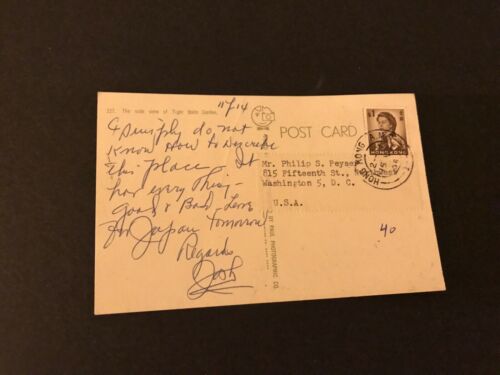 11/14
227. The side view of Tiger Balm Garden.
POST CARD
$1
HONG KONG
HONG KONG
I Simply do not
Know How to Describe
this place It
has every thing -
good & Bad - Leave
for Japan Tomorrow
Regards
Mr. Philip S. Peyser
815 Fifteenth St.,
Washington 5, D. C.
U.S.A.
40
PHOTOGRAPHIC CO.